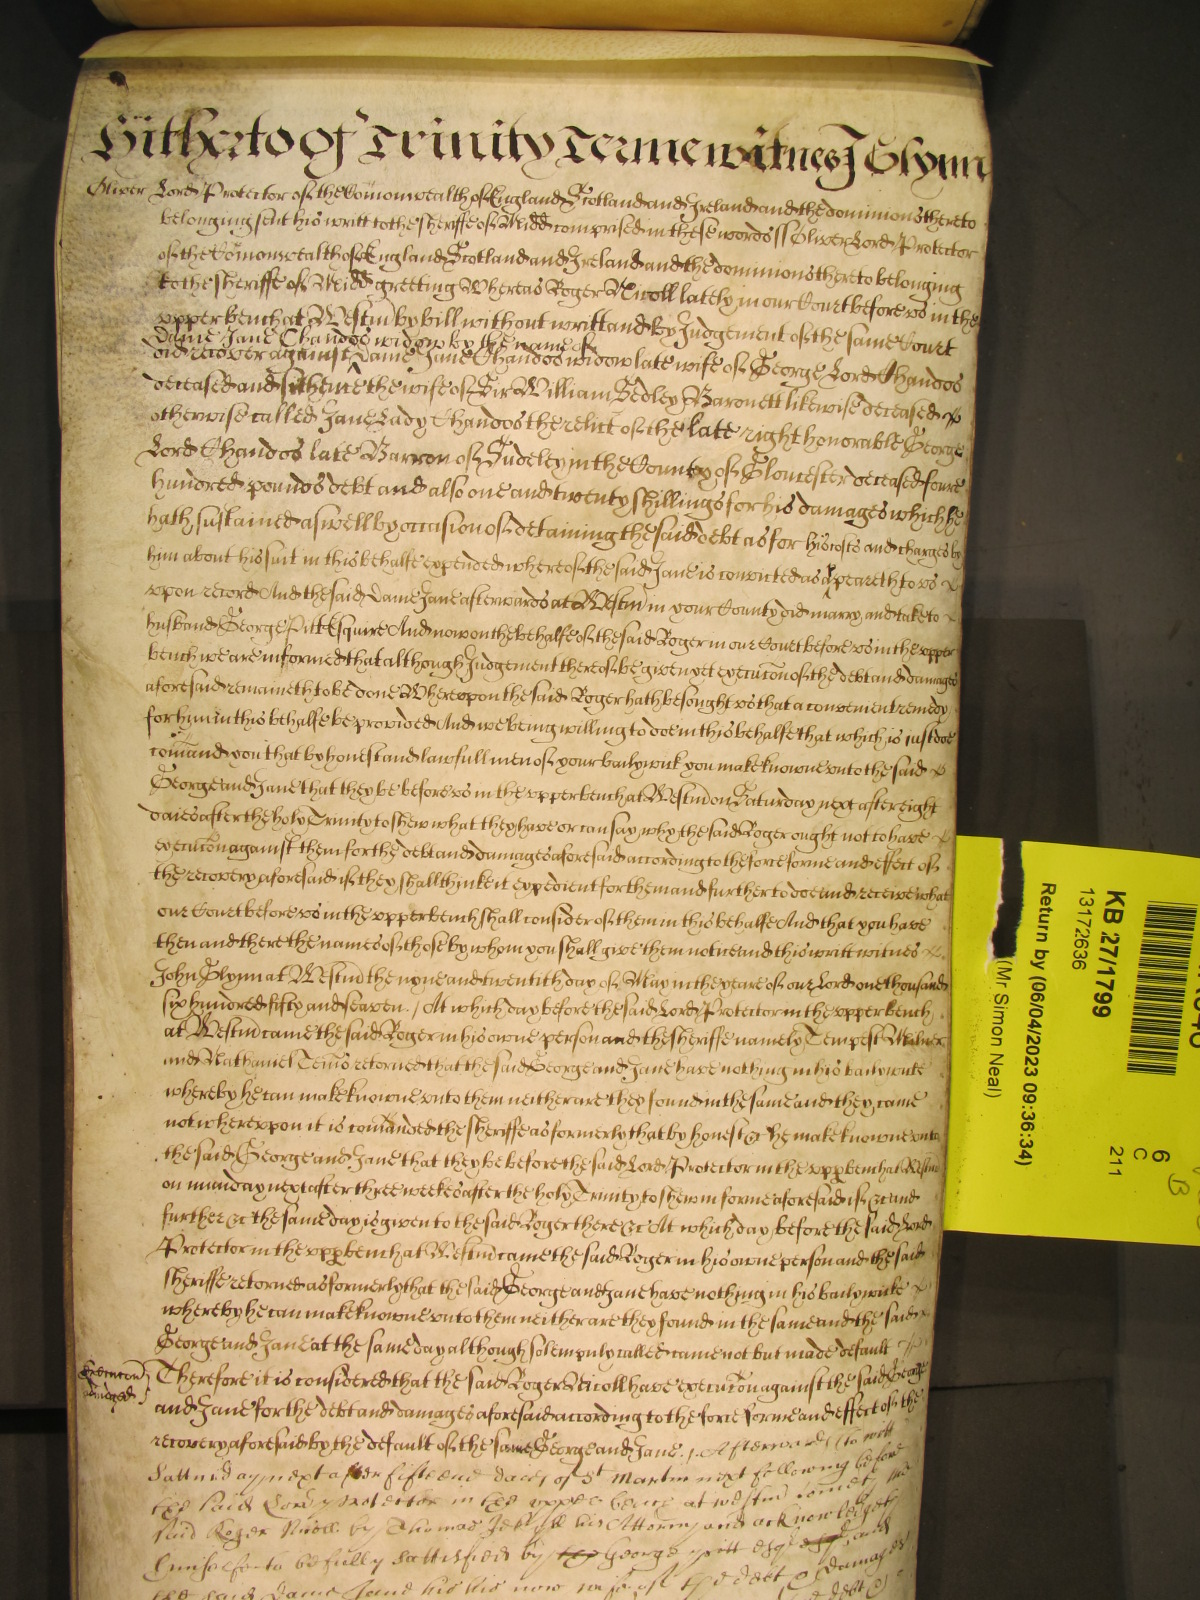 Hitherto of Trinity Terme witnes J Glynn
Oliver Lord Protector of the Comonwealth of England Scotland and Ireland and the dominions thereto
belonging sent his writt to the sheriffe of Midd comprised in these words ss Oliver Lord Protector
of the Comonwealth of England Scotland and Ireland and the dominions thereto belonging
to the sheriffe of Midd greeting Whereas Roger Nicoll lately in our Court before us in the
upper bench at Westm by bill without writt and by Judgement of the same Court
Dame Jane Chandos widow by the name of
did recover against Dame Jane Chandos widow late wife of George Lord Chandos
deceased and sithence the wife of Sir William Sedley Baronett likewise deceased
otherwise called Jane Lady Chandos the relict of the late right honorable George
Lord Chandos late Barron of Sudeley in the County of Gloucester deceased foure
hundred pounds debt and also one and twenty shillings for his damages which he
hath sustained aswell by occasion of detaining the said debt as for his costs and charges by
him about his suit in this behalfe expended whereof the said Jane is convicted as appeareth to us
upon record And the said Dame Jane afterwards at Westm in your County did marry and take to
husband George Pitt Esquire And now on the behalfe of the said Roger in our Court before us in the upper
bench we are informed that although Judgement thereof be given yet execucon of the debt and damages
aforesaid remaineth to be done Whereupon the said Roger hath besought us that a convenient remedy
for him in this behalfe be provided And we being willing to doe in this behalfe that which is just doe
comand you that by honest and lawfull men of your bailywick you make knowne unto the said
George and Jane that they be before us in the upper bench at Westm on Saturday next after eight
daies after the holy Trinity to shew what they have or can say why the said Roger ought not to have
execucon against them for the debt and damages aforesaid according to the force forme and effect of
the recovery aforesaid if they shall thinke it expedient for them and further to doe and receive what
our Court before us in the upper bench shall consider of them in this behalfe And that you have
then and there the names of those by whom you shall give them notice and this writt witnes
John Glynn at Westm the nyne and twentith day of May in the yeare of our Lord one thousand
six hundred fifty and seaven. / At which day before the said Lord Protector in the upper bench
at Westm came the said Roger in his owne person and the sheriffe namely Tempest Milner
and Nathaniel Tems retorned that the said George and Jane have nothing in his bailywicke
whereby he can make knowne unto them neither are they found in the same and they came
not whereupon it is comanded the sheriffe as formerly that by honest &c he make knowne unto
the said George and Jane that they be before the said Lord Protector in the upp bench at Westm
on munday next after three weekes after the holy Trinity to shew in forme aforesaid if &c and
further &c the same day is given to the said Roger there &c At which day before the said Lord
Protector in the upp bench at Westm came the said Roger in his owne person and the said
sheriffe retorned as formerly that the said George and Jane have nothing in his bailywicke
whereby he can make knowne unto them neither are they found in the same and the said
George and Jane at the same day although solempnly called came not but made default
Execucon
adiudged
Therefore it is considered that the said Roger Nicoll have execucon against the said George
and Jane for the debt and damages aforesaid according to the force forme and effect of the
recovery aforesaid by the default of the same George and Jane. / Afterwards to witt
Satturday next after fifteene daies of St Martin next following before
the said Lord Protector in the upper bench at Westm cometh the
said Roger Nicoll by Thomas his Attorny and acknowledgeth
himselfe to be fully sattisfied by George Pitt Esq and
the said Dame Jane his now wife of the debt & damages
KB 27/1799
13172636
Return by (06/04/2023 09:36:34)
(Mr Simon Neal)
6
C
211